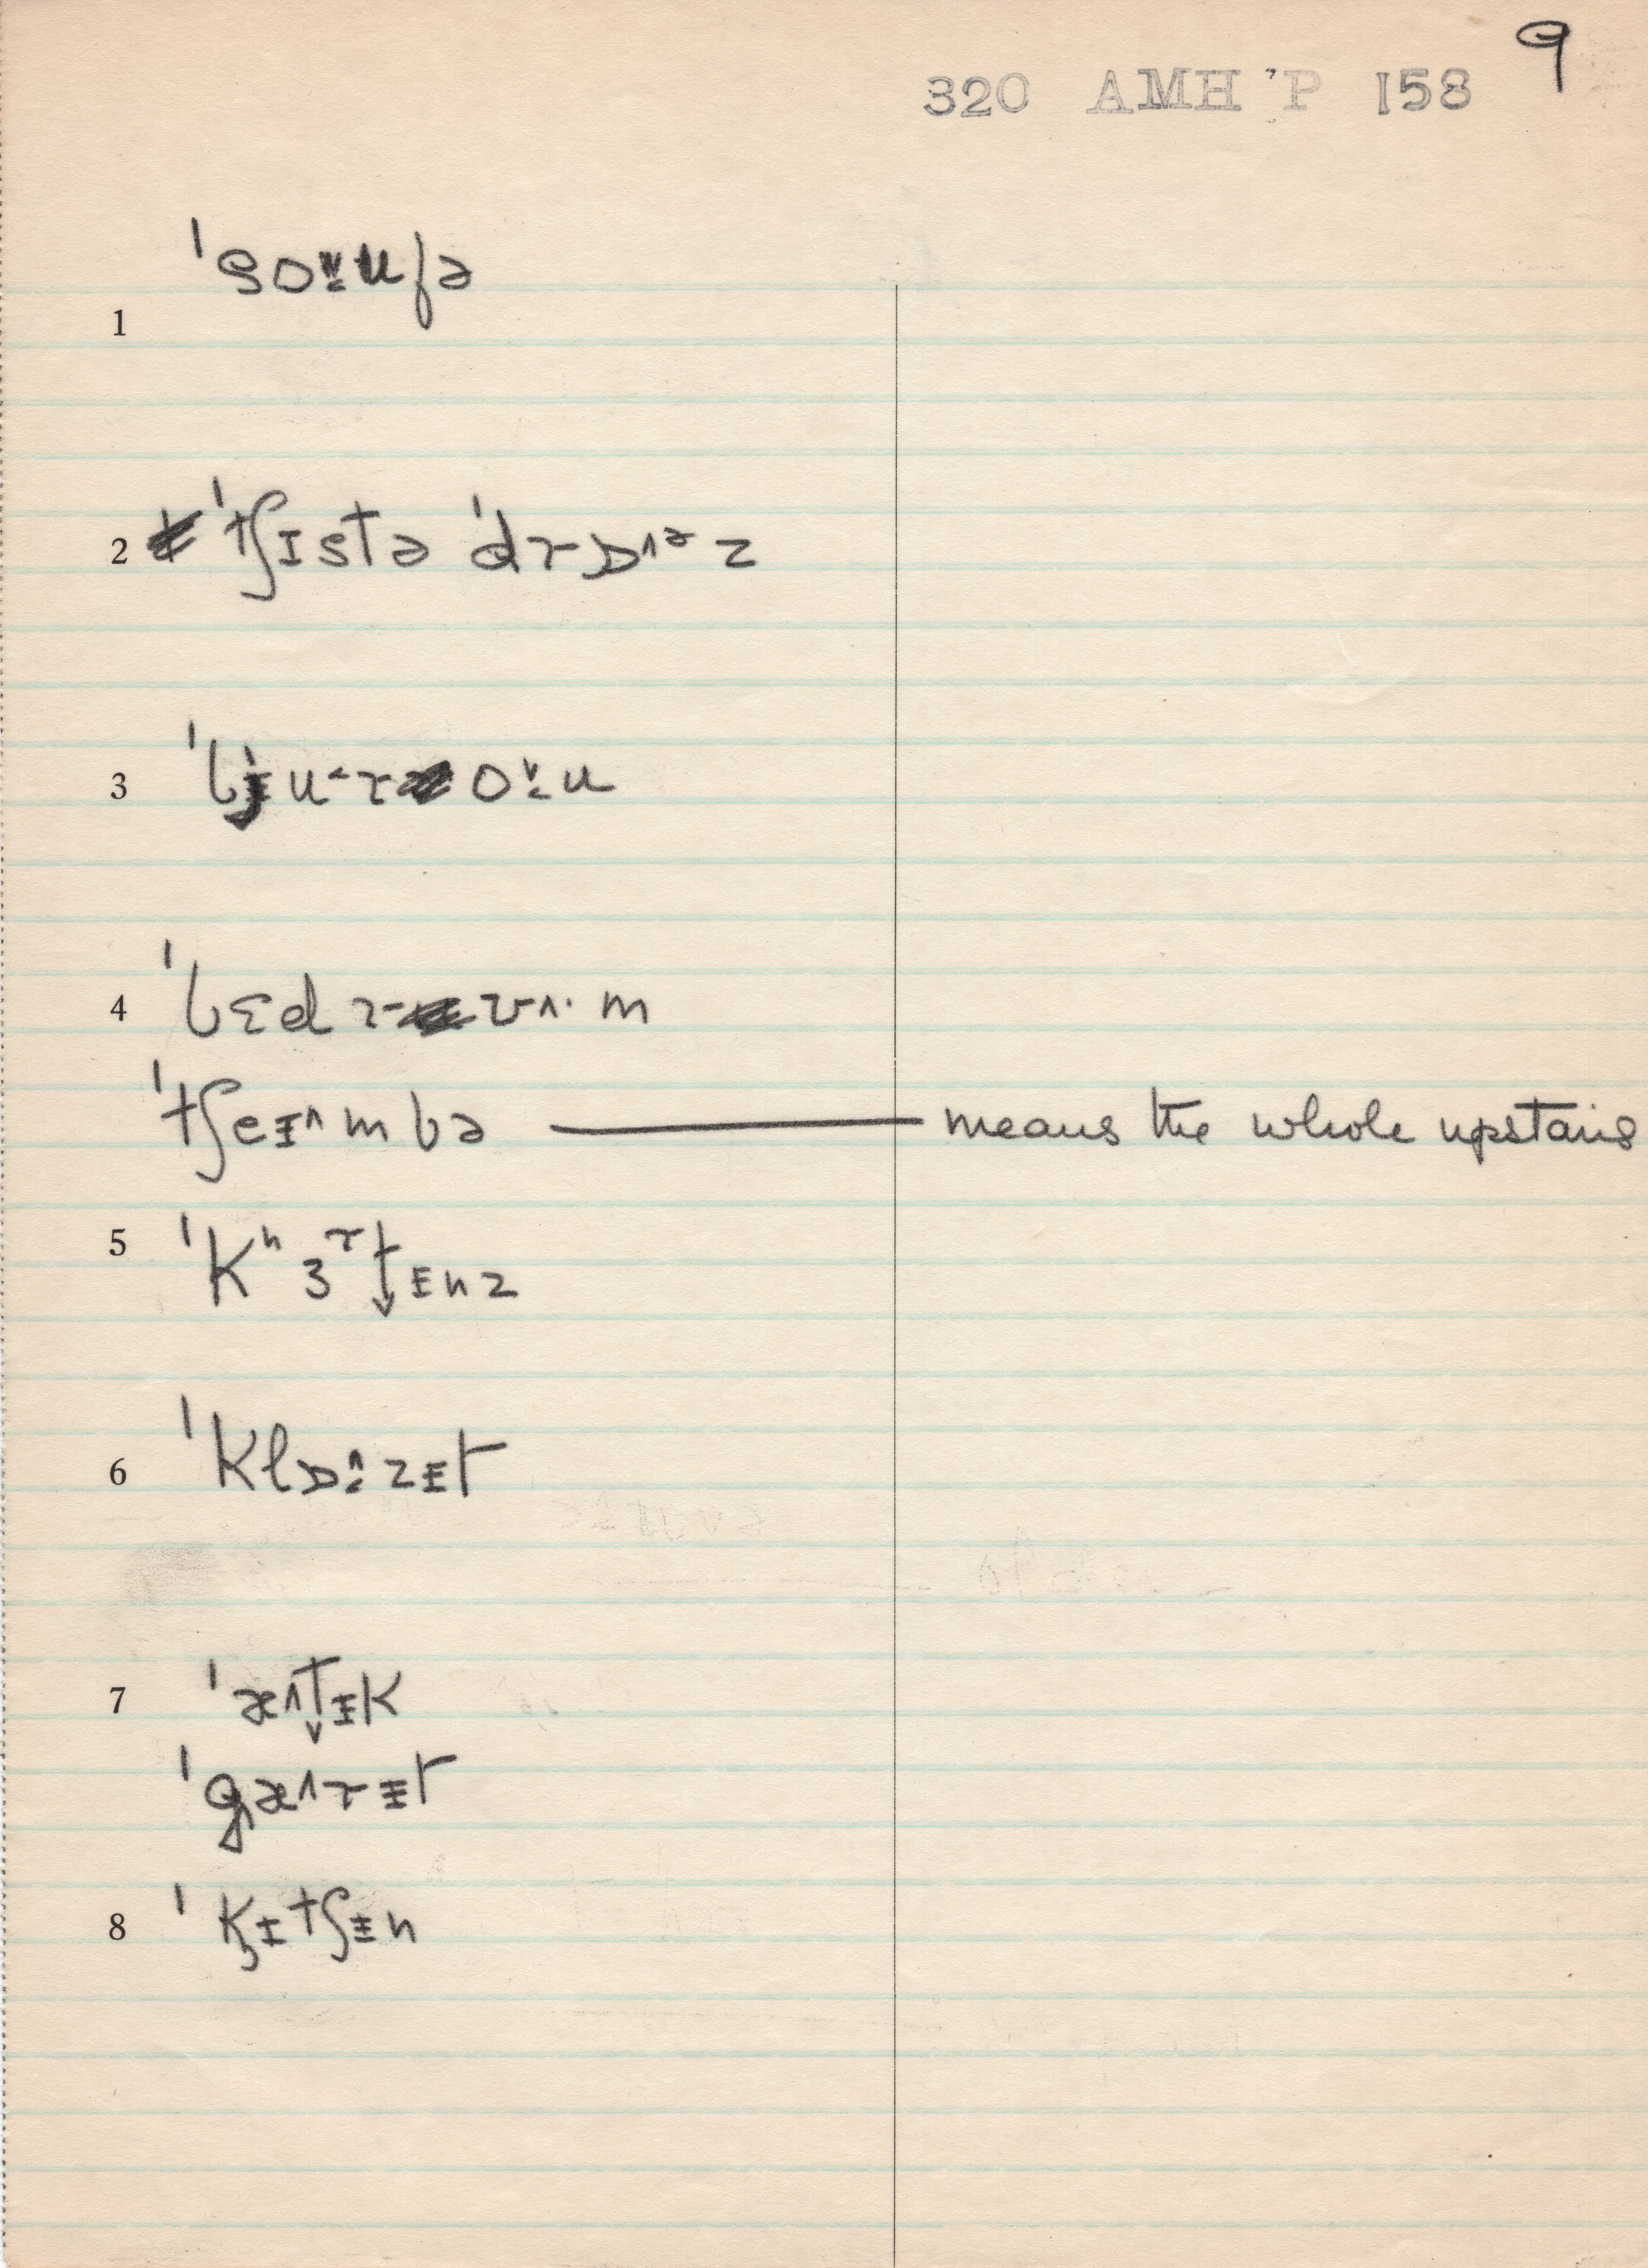 9
320 AMH'P 158
1 ˈsoᵿufə
2 ˈtʃɪstə ˈdrɒ˄ᵊz
3 ˈbju˂ro˅u
4 ˈbɛdrʊ˄·m
ˈtʃeɪ˄mbə — means the whole upstairs
5 ˈkʰɜʳt̬ᵻnz
6 ˈklɒ˄zᵻt
7 ˈæ˄t̬ᵻk
ˈgæ˄rᵻt
8 ˈkɪtʃᵻn